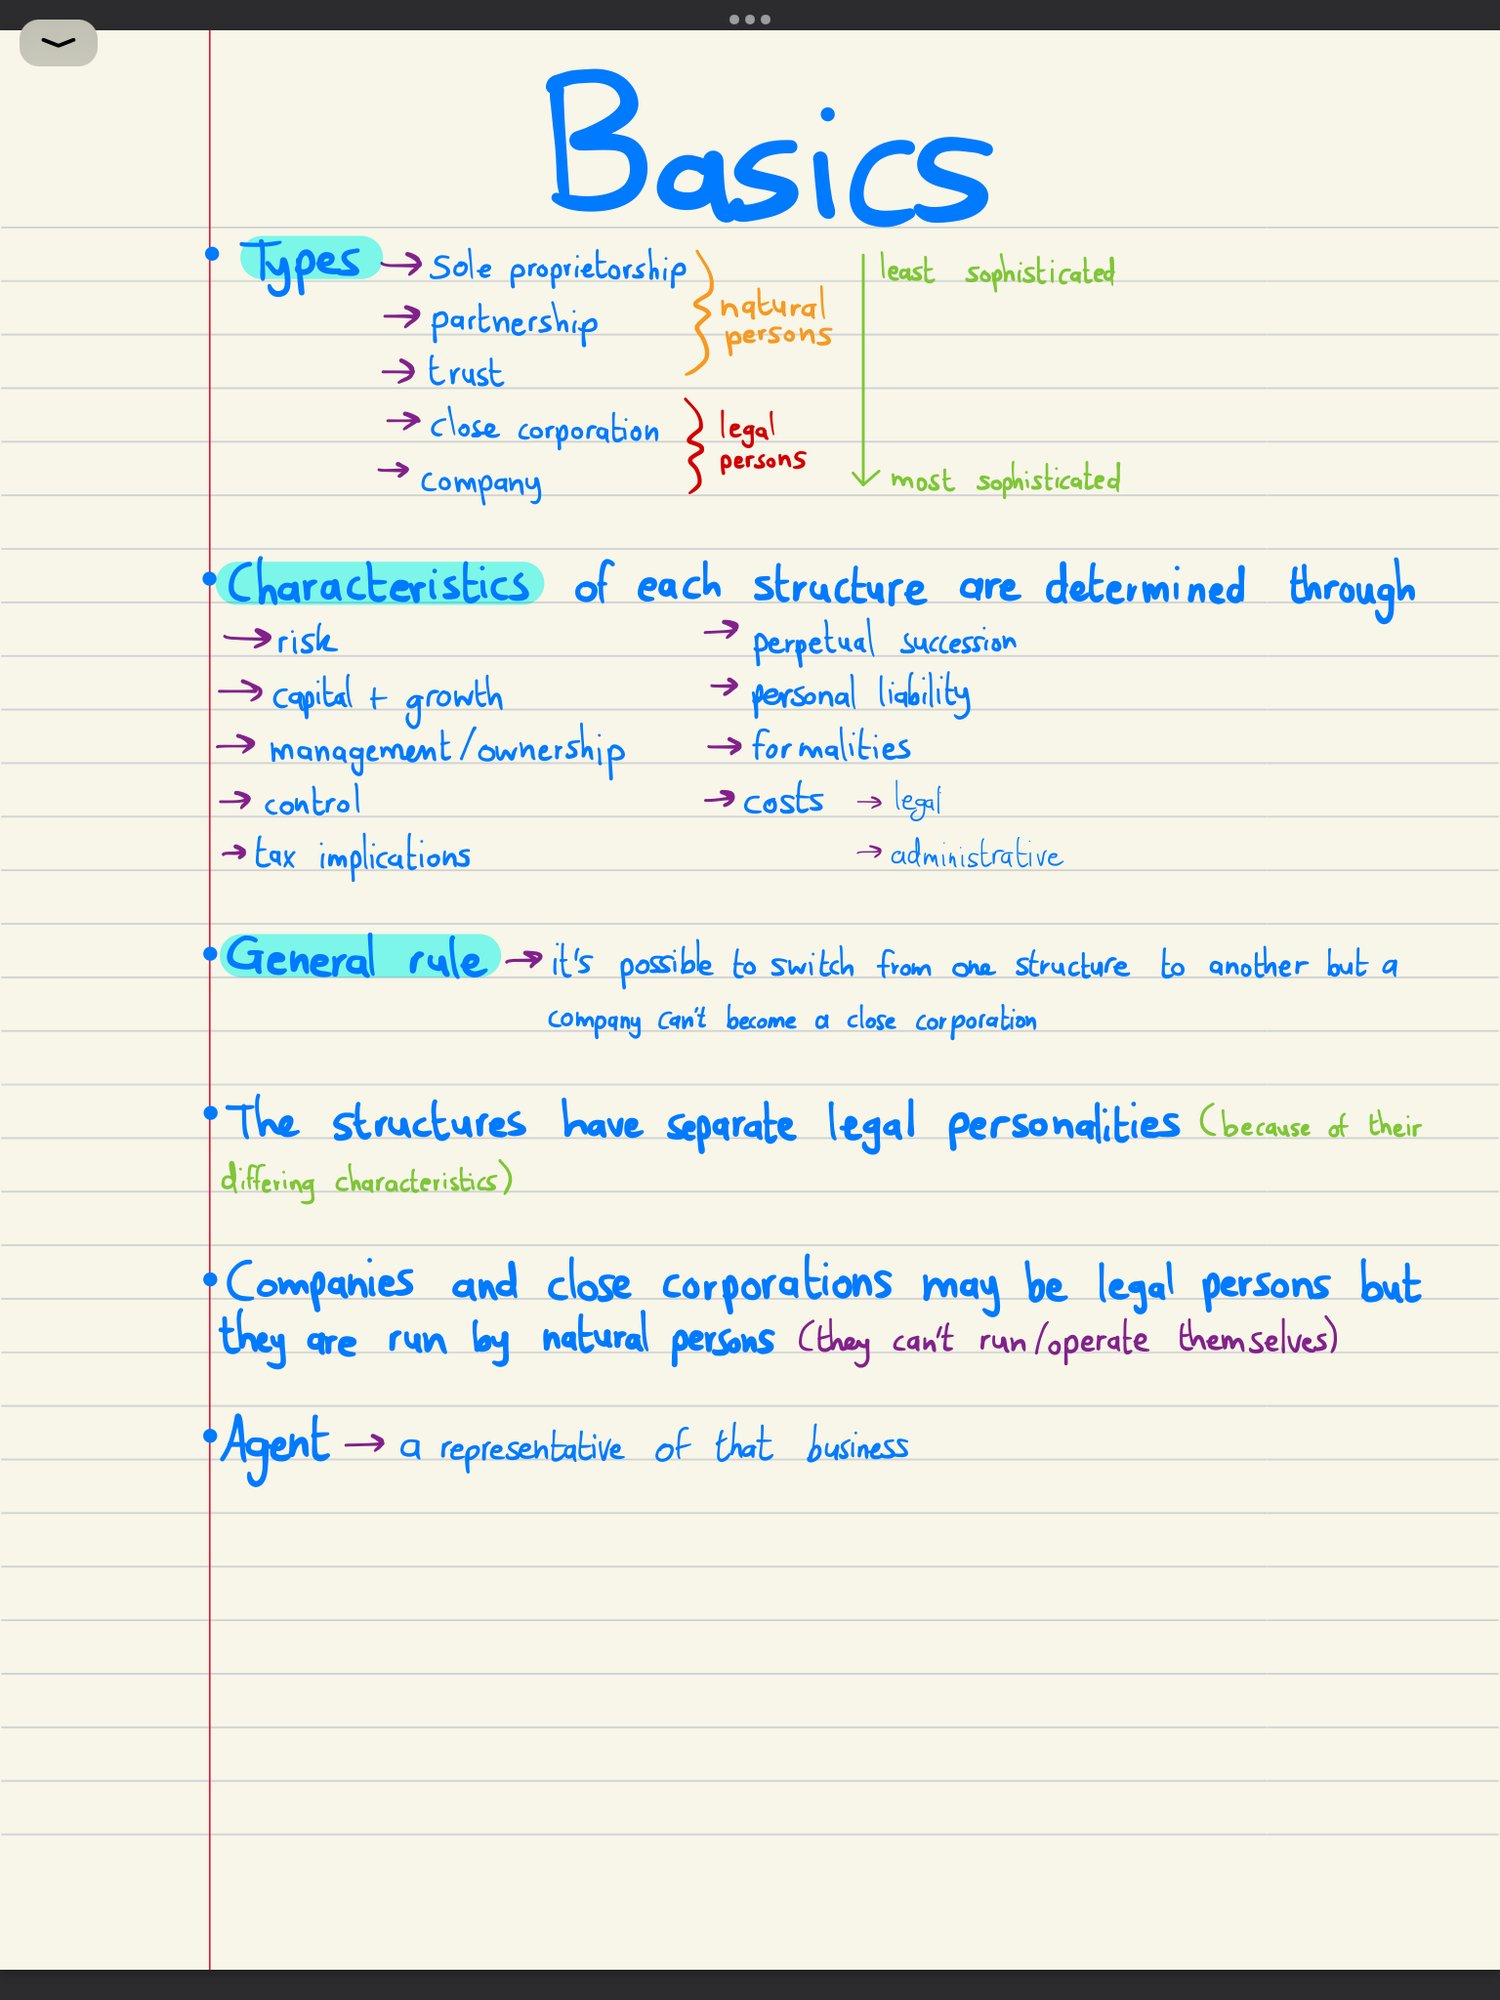 Basics
• Types → Sole proprietorship } natural persons
→ partnership
→ trust
→ close corporation } legal persons
→ company
least sophisticated
↓
most sophisticated
• Characteristics of each structure are determined through
→ risk
→ capital + growth
→ management/ownership
→ control
→ tax implications
→ perpetual succession
→ personal liability
→ formalities
→ costs → legal
→ administrative
• General rule → it's possible to switch from one structure to another but a
company can't become a close corporation
• The structures have separate legal personalities (because of their
differing characteristics)
• Companies and close corporations may be legal persons but
they are run by natural persons (they can't run/operate themselves)
• Agent → a representative of that business